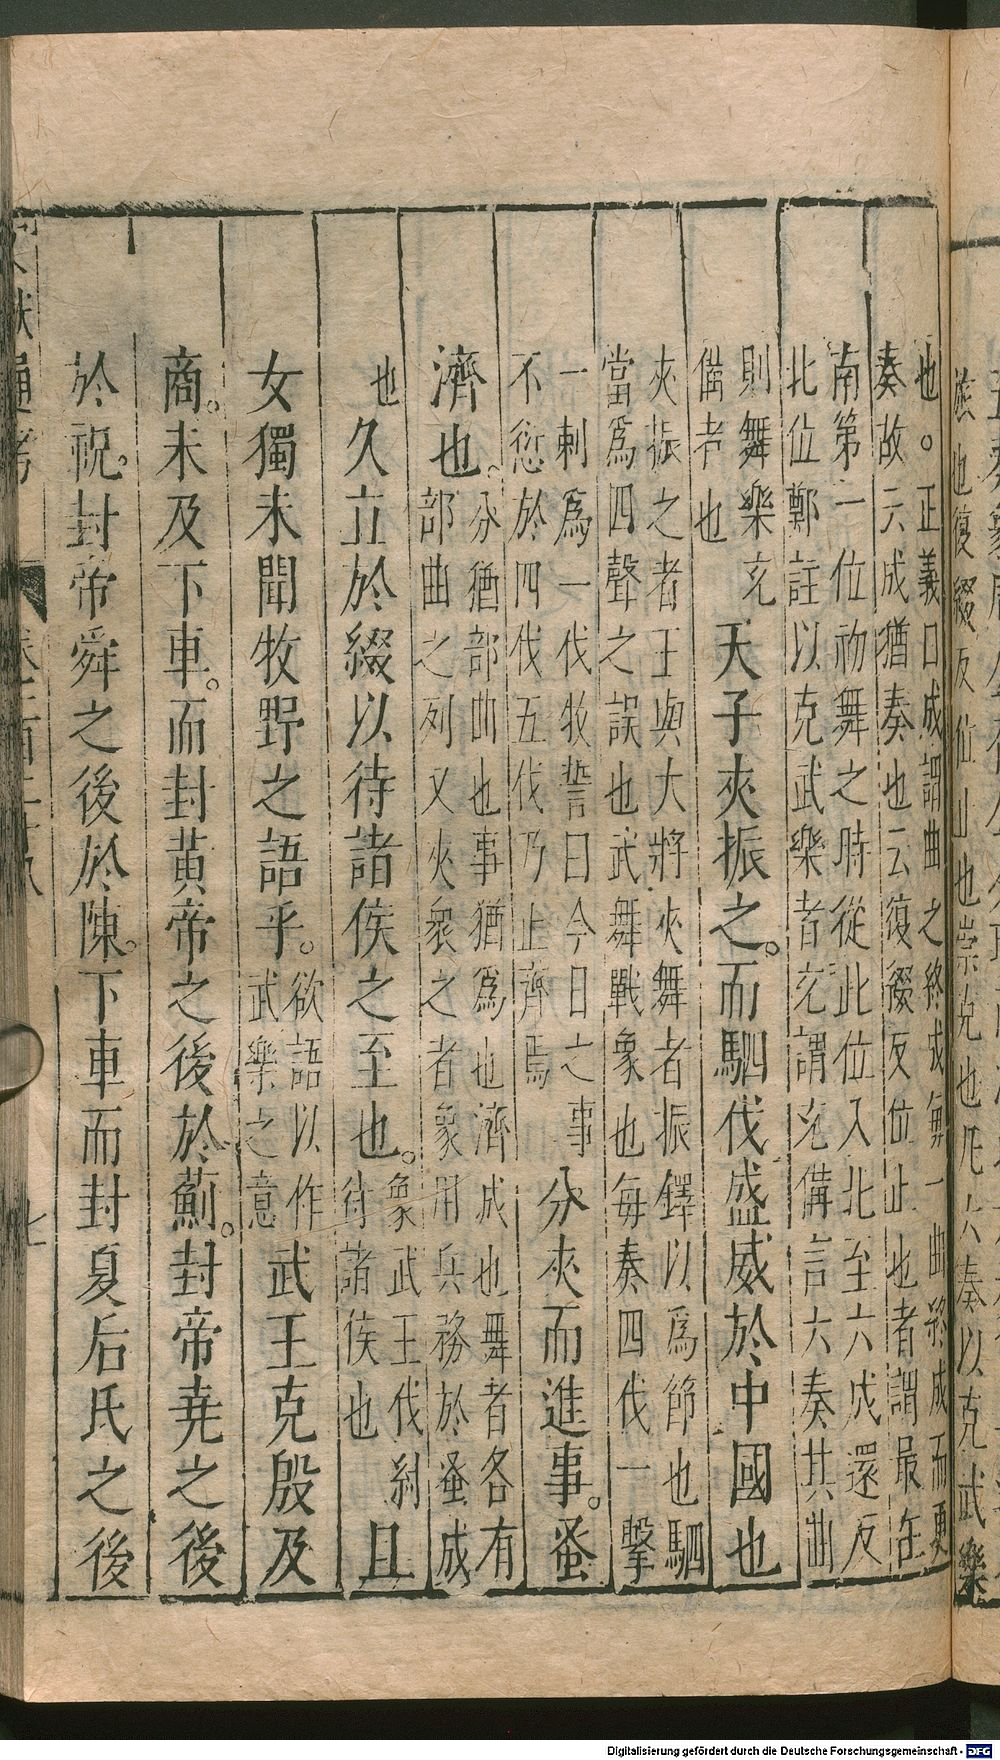 族也復綴反位止也崇充也凡六奏以克武樂
也。正義曰成謂曲之終成每一曲終成而更
奏故云成猶奏也云復綴反位止也者謂最在
南第一位初舞之時從此位入北至六成還反
北位鄭註以克武樂者充謂充備言六奏其曲
則舞樂充
備者也
天子夾振之。而駟伐盛威於中國也
夾振之者王與大將夾舞者振鐸以爲節也駟
當爲四聲之誤也武舞戰象也每奏四伐一擊
一刺爲一伐牧誓曰今日之事
不愆於四伐五伐乃止齊焉
分夾而進事。蚤
濟也。
分猶部曲也事猶爲也濟成也舞者各有
部曲之列又夾衆之者象用兵務於蚤成
也
久立於綴以待諸侯之至也。
象武王伐紂
待諸侯也
且
女獨未聞牧野之語乎。
欲語以作
武樂之意
武王克殷及
商。未及下車。而封黃帝之後於薊。封帝堯之後
於祝。封帝舜之後於陳。下車而封夏后氏之後
文獻通考
七
Digitalisierung gefördert durch die Deutsche Forschungsgemeinschaft - DFG